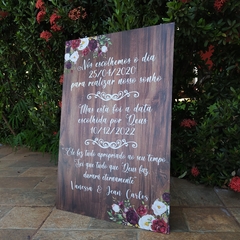 Nós escolhemos o dia
25/04/2020
para realizar nosso sonho
Mas esta foi a data
escolhida por Deus
10/12/2022
"Ele fez tudo apropriado ao seu tempo.
Sei que tudo que Deus faz
durará eternamente"
Vanessa & Jean Carlos